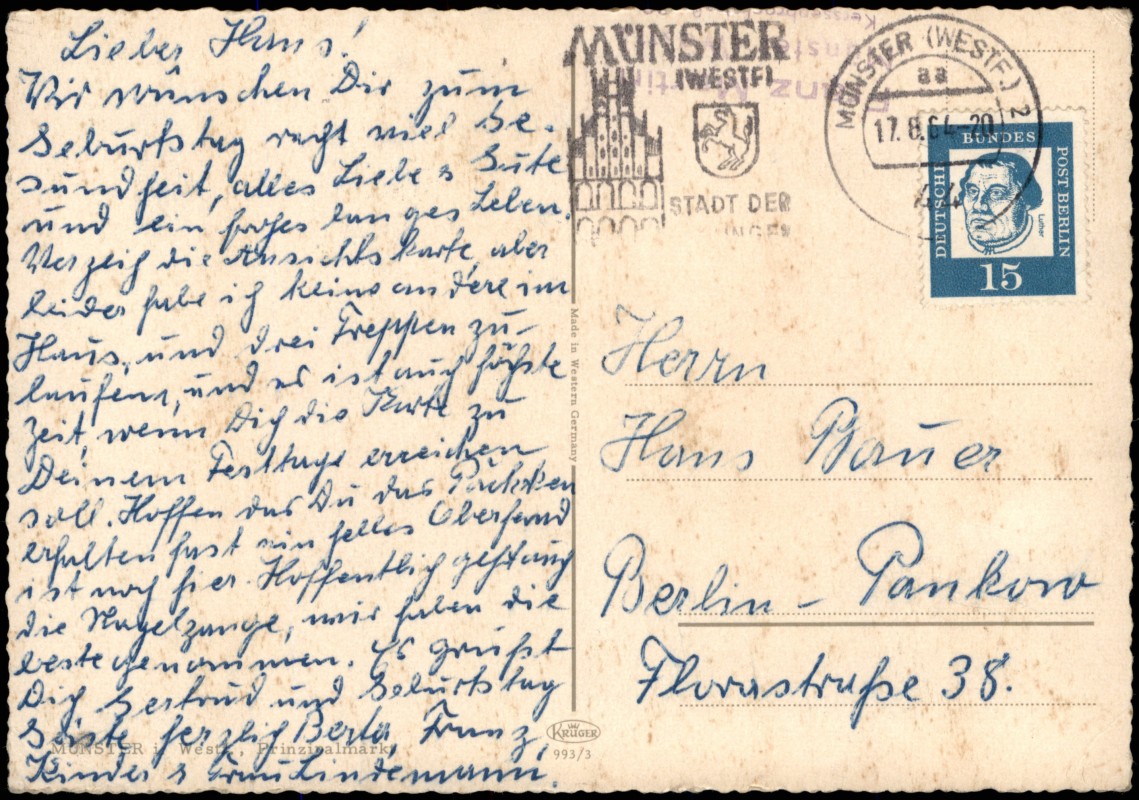 Lieber Hans!
Wir wünschen Dir zum
Geburtstag recht viel Ge-
sundheit, alles Liebe & Gute
und ein frohes langes Leben.
Verzeih die Ansichtskarte, aber
leider habe ich keine andere im
Haus, und drei Treppen zu-
laufen, und es ist auch höchste
Zeit, wenn Dich die Karte zu
Deinem Festtage erreichen
soll. Hoffen das Du das Päckchen
erhalten hast ein helles Oberhemd
ist noch hier. Hoffentlich geht auch
die Nagelzange, wir haben die
beste genommen. Es grüßt
Dich Gertrud und Geburtstag
Gäste herzlich Berta, Franz,
Kinder & Frau Lindemann.
MÜNSTER i. Westf., Prinzipalmarkt
Made in Western Germany
KRÜGER
993/3
MÜNSTER
(WESTF)
STADT DER
MÜNSTER (WESTF.) 2
aa
17.8.64-20
DEUTSCHE
BUNDES
POST BERLIN
Luther
15
Herrn
Hans Bauer
Berlin-Pankow
Florastraße 38.